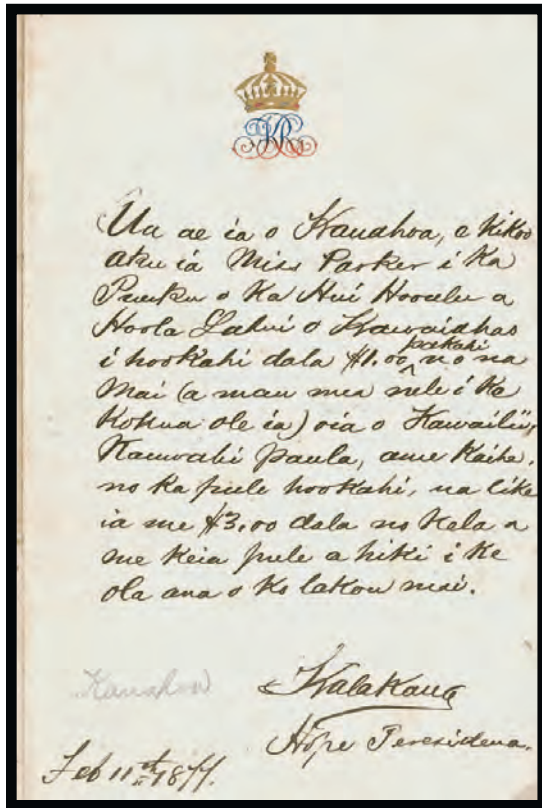 Ua ae ia o Kanahoa, e kikoo
aku iā Miss Parker i ka
Puuku o ka Hui Hooulu a
Hoola Lahui o Kawaiahao
i hookahi dala $1.00 pakahi no na
Mai (a mau mea nele i ke
kokua ole ia) oia o Kawailii,
Kauwahi Paula, ame Kaihe,
no ka pule hookahi, ua like
ia me $3.00 dala no kela a
me keia pule a hiki i ke
ola ana o ko lakou mai.
Kanahoa
Kalakaua
Hope Peresidena.
Feb 11th 1877.